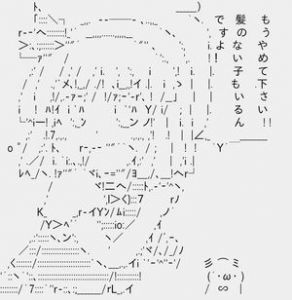 もうやめて下さい!!
髪のない子もいるん
ですよ!